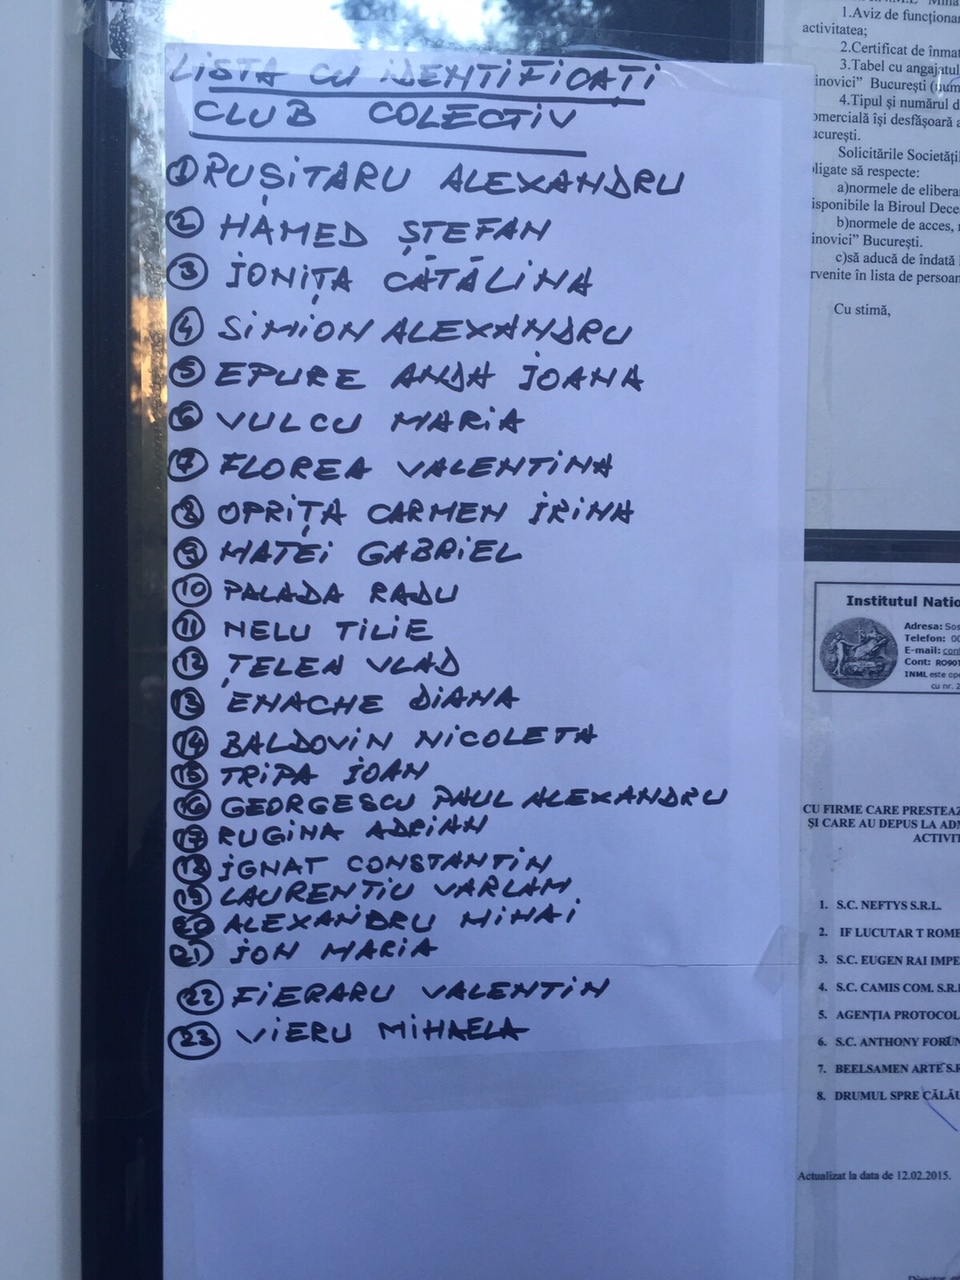 LISTA CU IDENTIFICAȚI
CLUB COLECTIV
1 RUȘITARU ALEXANDRU
2 HAMED ȘTEFAN
3 IONIȚA CĂTĂLINA
4 SIMION ALEXANDRU
5 EPURE ANDA IOANA
6 VULCU MARIA
7 FLOREA VALENTINA
8 OPRIȚA CARMEN IRINA
9 MATEI GABRIEL
10 PALADA RADU
11 NELU TILIE
12 ȚELEA VLAD
13 ENACHE DIANA
14 BALDOVIN NICOLETA
15 TRIPA IOAN
16 GEORGESCU PAUL ALEXANDRU
17 RUGINA ADRIAN
18 IGNAT CONSTANTIN
19 LAURENTIU VARLAM
20 ALEXANDRU MIHAI
21 ION MARIA
22 FIERARU VALENTIN
23 VIERU MIHAELA
1.Aviz de funcționar
activitatea;
2.Certificat de înmat
3.Tabel cu angajatul
inovici" București (num
4.Tipul și numărul d
omercială își desfășoară a
ucurești.
Solicitările Societăți
ligate să respecte:
a)normele de elibera
isponibile la Biroul Dece
b)normele de acces,
inovici" București.
c)să aducă de îndată
rvenite în lista de persoan
Cu stimă,
Institutul Natio
Adresa: Sos
Telefon: 00
E-mail: cont
Cont: RO90T
INML este ope
cu nr. 2
CU FIRME CARE PRESTEAZ
ȘI CARE AU DEPUS LA ADM
ACTIVIT
1. S.C. NEFTYS S.R.L.
2. IF LUCUTAR T ROME
3. S.C. EUGEN RAI IMPE
4. S.C. CAMIS COM. S.R.L
5. AGENȚIA PROTOCOL
6. S.C. ANTHONY FORUN
7. BEELSAMEN ARTE S.R
8. DRUMUL SPRE CĂLĂU
Actualizat la data de 12.02.2015.